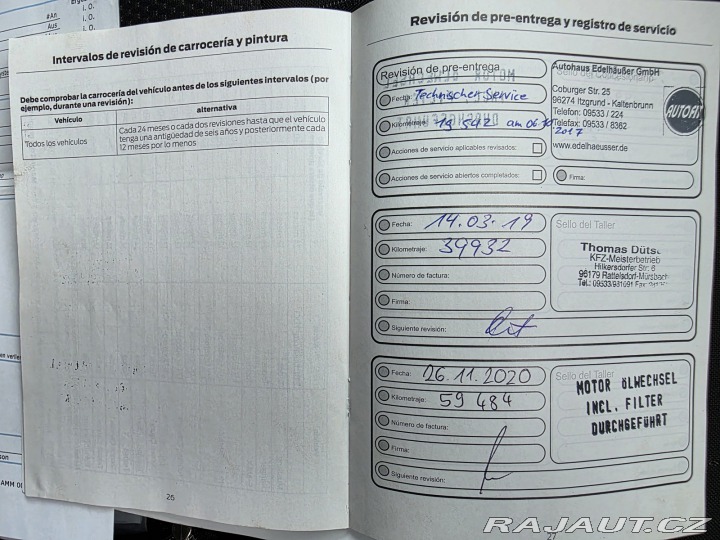 Intervalos de revisión de carrocería y pintura
Debe comprobar la carrocería del vehículo antes de los siguientes intervalos (por
ejemplo, durante una revisión):
Vehículo
alternativa
Todos los vehículos
Cada 24 meses o cada dos revisiones hasta que el vehículo
tenga una antigüedad de seis años y posteriormente cada
12 meses por lo menos
26
Revisión de pre-entrega y registro de servicio
Revisión de pre-entrega
Fecha: Technischer Service
Kilometraje: 19 542 am 06.10
2017
Acciones de servicio aplicables revisados:
Acciones de servicio abiertos completados:
Autohaus Edelhäußer GmbH
Coburger Str. 25
96274 Itzgrund - Kaltenbrunn
Telefon: 09533 / 224
Telefax: 09533 / 8362
www.edelhaeusser.de
Firma:
Fecha: 14.03.19
Kilometraje: 39932
Número de factura:
Firma:
Siguiente revisión:
Sello del Taller
Thomas Düts
KFZ-Meisterbetrieb
Hilkersdorfer Str. 6
96179 Rattelsdorf-Mürsbach
Tel.: 09533/981091
Fecha: 26.11.2020
Kilometraje: 59 484
Número de factura:
Firma:
Siguiente revisión:
Sello del Taller
MOTOR ÖLWECHSEL
INCL. FILTER
DURCHGEFÜHRT
27
RAJAUT.CZ